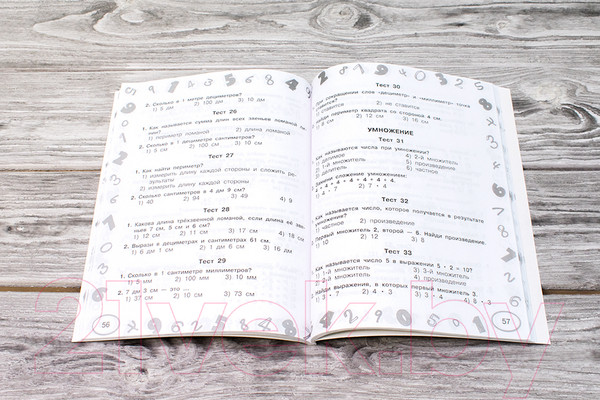 2. Сколько в 1 метре дециметров?
1) 5 дм 2) 100 дм 3) 10 дм
Тест 26
1. Как называется сумма длин всех звеньев ломаной
1) периметр ломаной 2) длина ломаной
2. Сколько в 1 дециметре сантиметров?
1) 5 см 2) 100 см 3) 10 см
Тест 27
1. Как найти периметр?
1) измерить длину каждой стороны и сложить ре-
зультаты
2) измерить длину каждой стороны
2. Сколько сантиметров в 4 дм 9 см?
1) 40 2) 94 3) 49 4) 9
Тест 28
1. Какова длина трёхзвенной ломаной, если длина её зве-
ньев 7 см, 5 см и 6 см?
1) 12 см 2) 11 см 3) 17 см 4) 18 см
2. Вырази в дециметрах и сантиметрах 61 см.
1) 6 дм 1 см 2) 1 дм 6 см 3) 16 дм
Тест 29
1. Сколько в 1 сантиметре миллиметров?
1) 5 мм 2) 100 мм 3) 10 мм
2. 7 дм 3 см — это ...
1) 37 см 2) 10 см 3) 73 см
56
Тест 30
При сокращении слов «дециметр» и «миллиметр» точка
ставится?
1) ставится 2) не ставится
периметр квадрата со стороной 4 см.
1) 8 см 2) 12 см 3) 16 см 4) 4 см
УМНОЖЕНИЕ
Тест 31
Как называются числа при умножении?
1) делимое 4) 2-й множитель
2) 1-й множитель 5) произведение
3) делитель 6) частное
Замени сложение умножением:
2) 7 • 4
Тест 32
Как называется число, которое получается в результате
умножения?
1) частное 2) произведение
Первый множитель 2, второй — 6. Найди произведение.
1) 10 2) 12 3) 8
Тест 33
Как называется число 5 в выражении 5 • 2 = 10?
1) 1-й множитель 3) 3-й множитель
2) 2-й множитель 4) произведение
выражения, в которых первый множитель 3.
1) 3 • 7 2) 4 • 3 3) 3 • 4 4) 8 • 3
57